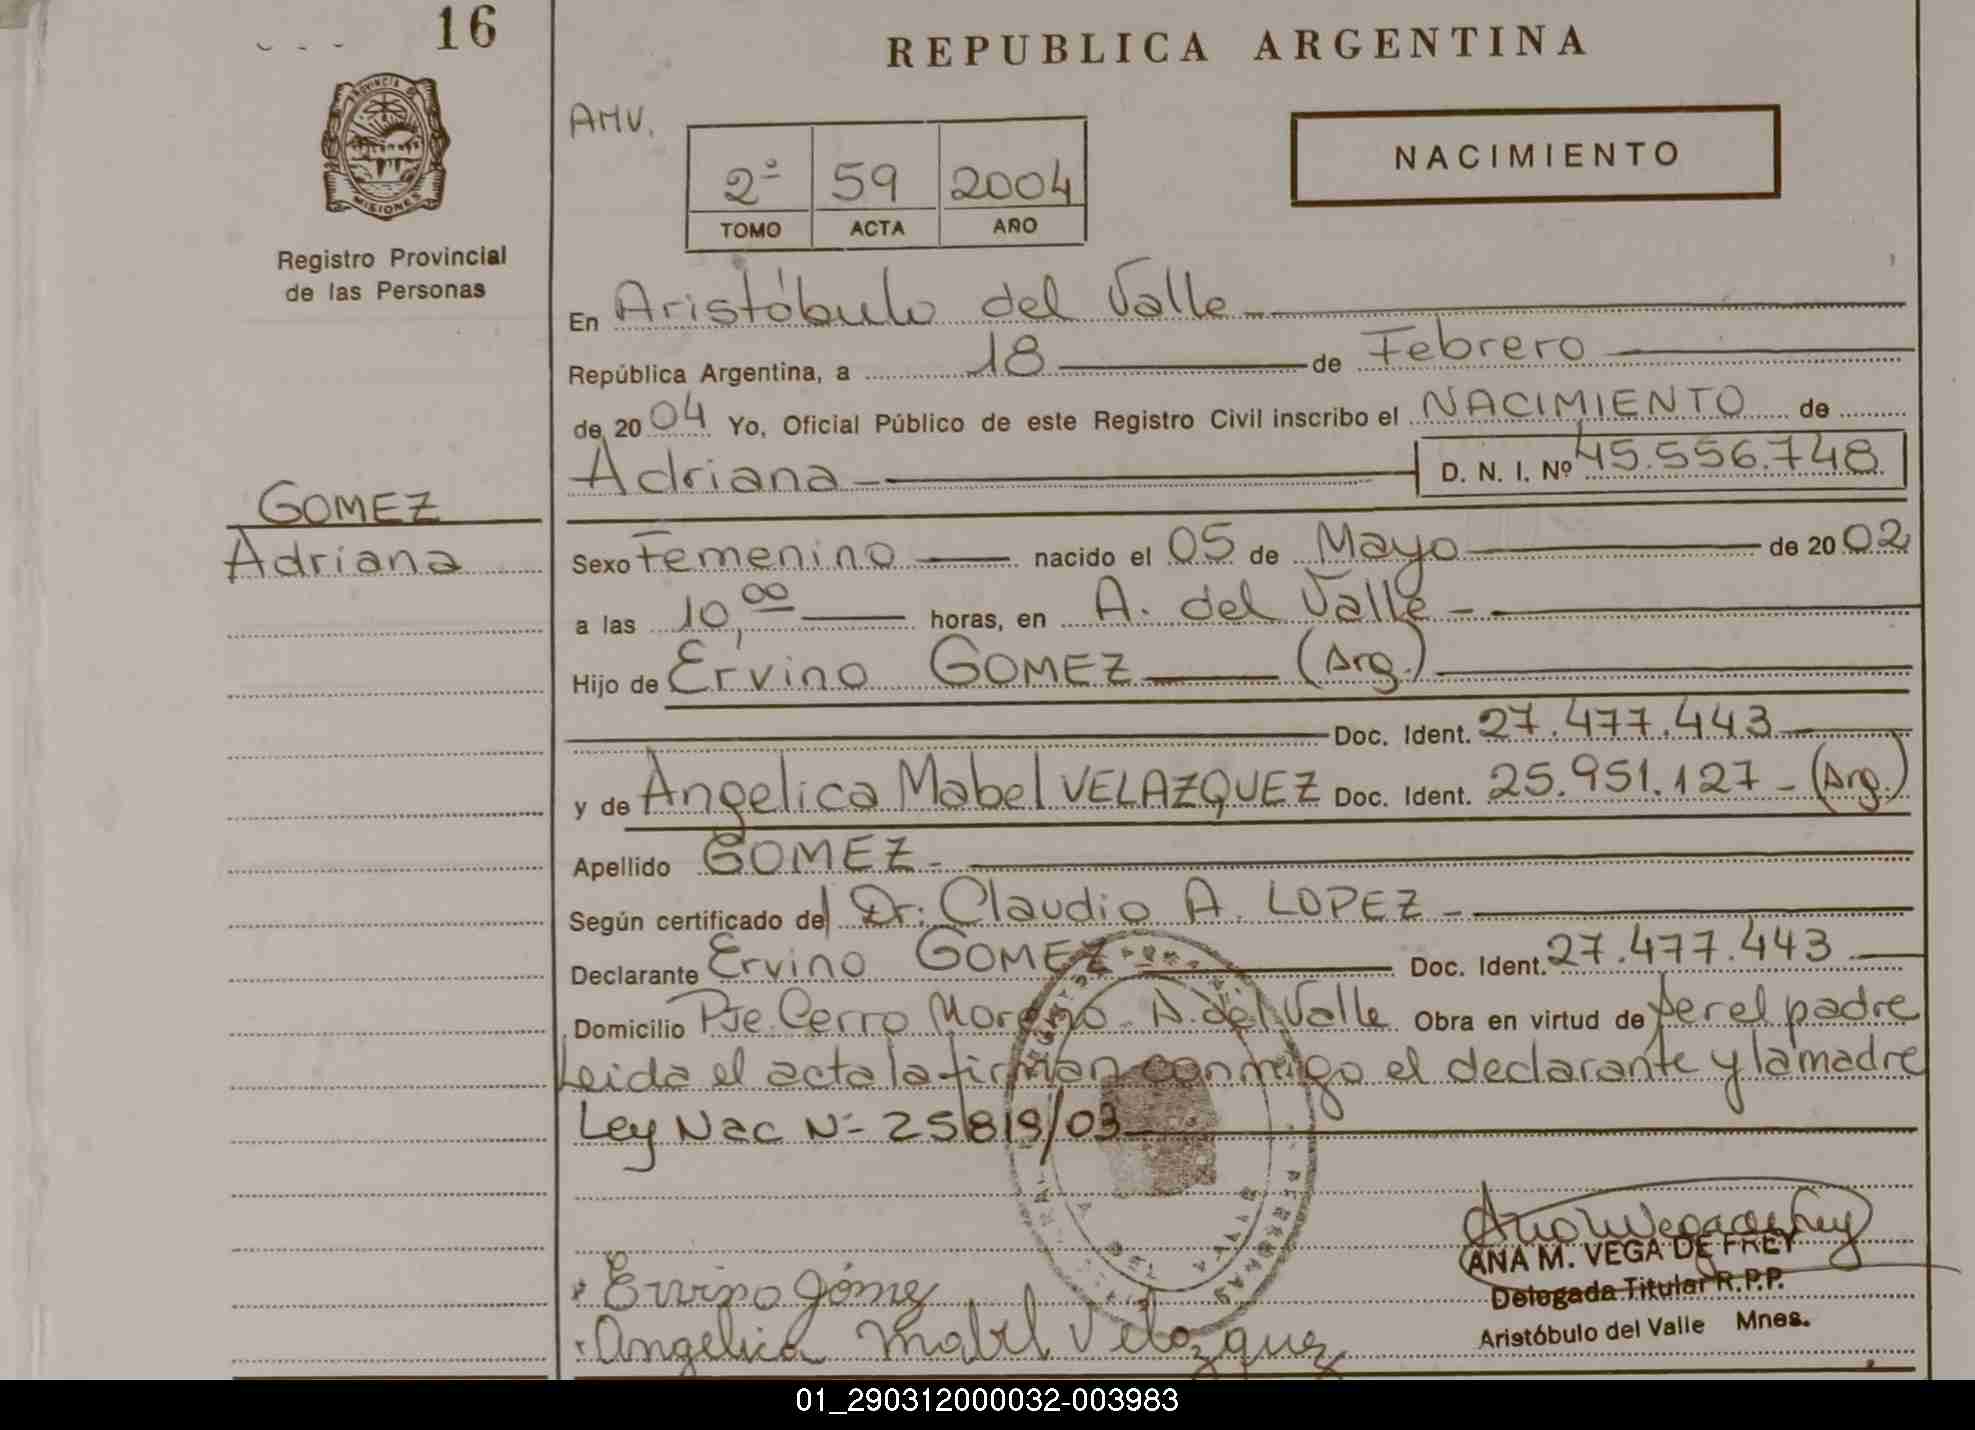 16
REPUBLICA ARGENTINA
PROVINCIA DE
MISIONES
Registro Provincial
de las Personas
AMV.
2º 59 2004
TOMO ACTA AÑO
NACIMIENTO
En Aristóbulo del Valle
República Argentina, a 18 de Febrero
de 2004 Yo, Oficial Público de este Registro Civil inscribo el NACIMIENTO de
Adriana D. N. I. Nº 45.556.748
GOMEZ
Adriana
Sexo Femenino nacido el 05 de Mayo de 2002
a las 10,00 horas, en A. del Valle
Hijo de Ervino GOMEZ (Arg.)
Doc. Ident. 27.477.443
y de Angelica Mabel VELAZQUEZ Doc. Ident. 25.951.127 - (Arg.)
Apellido GOMEZ
Según certificado del Dr: Claudio A. LOPEZ
Declarante Ervino GOMEZ Doc. Ident. 27.477.443
Domicilio Pje. Cerro Moreno - A. del Valle Obra en virtud de ser el padre
Leida el acta la firman conmigo el declarante y la madre
Ley Nac Nº 25819/03
Ervino Gómez
Angelica Mabel Velazquez
ANA M. VEGA DE FREY
Delegada Titular R.P.P.
Aristóbulo del Valle Mnes.
01_290312000032-003983